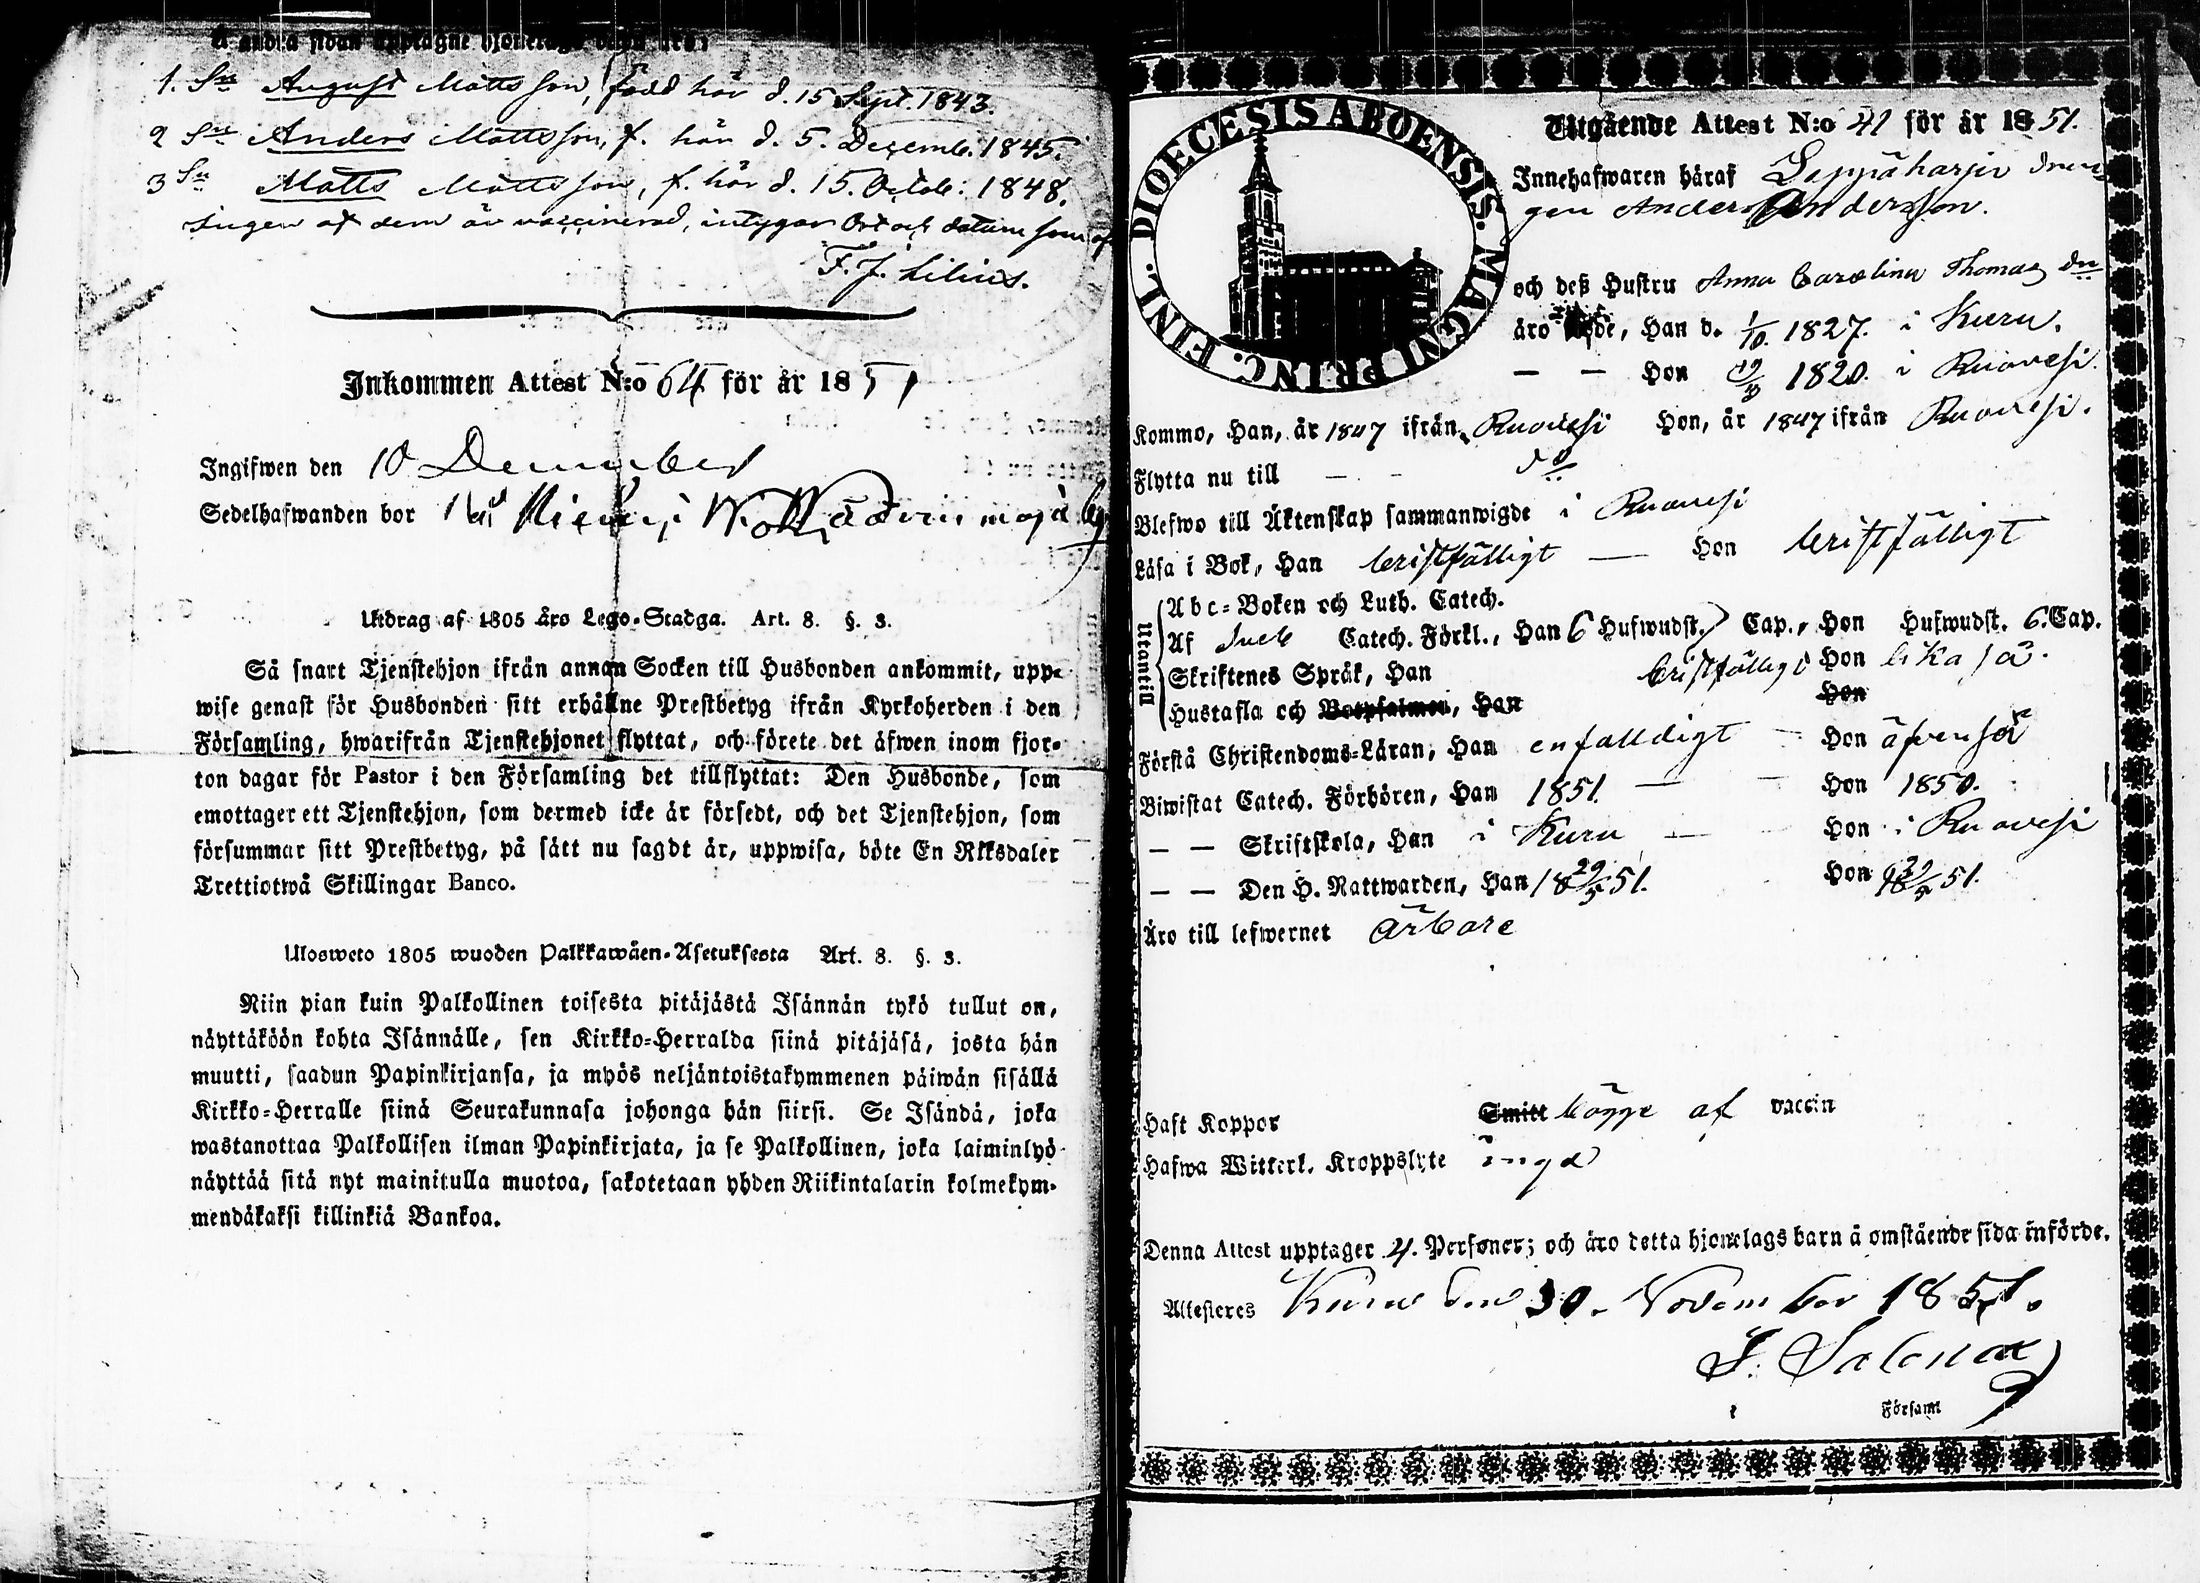 å andra sidan upptagne hjonelags barn äro:
1. Sn August Matts son, född här d. 15 Sept. 1843.
2 Sn Anders Mattsson, f. här d. 5. Decemb. 1845.
3 Sn Matts Mattsson, f. här d. 15. Octob: 1848.
Ingen af dem är vaccinerad, intygar Ort och datum som
F. J. Lilius.
Inkommen Attest N:o 64 för år 1851
Ingifwen den 10 December
Sedelhafwanden bor
Utdrag af 1805 åro Lego-Stadga. Art. 8. §. 3.
Så snart Tjenstehjon ifrån annan Socken till Husbonden ankommit, upp-
wise genast för Husbonden sitt erhållne Prestbetyg ifrån Kyrkoherden i den
Församling, hwarifrån Tjenstehjonet flyttat, och förete det äfwen inom fjor-
ton dagar för Pastor i den Församling det tillflyttat: Den Husbonde, som
emottager ett Tjenstehjon, som dermed icke är försedt, och det Tjenstehjon, som
försummar sitt Prestbetyg, på sätt nu sagdt är, uppwisa, böte En Riksdaler
Trettiotwå Skillingar Banco.
Ulosweto 1805 wuoden Palkkawäen-Asetuksesta Art. 8. §. 3.
Niin pian kuin Palkollinen toisesta pitäjästä Isännän tykö tullut on,
näyttäköön kohta Isännälle, sen Kirkko-Herralda siinä pitäjäsä, josta hän
muutti, saadun Papinkirjansa, ja myös neljäntoistakymmenen päiwän sisällä
Kirkko-Herralle siinä Seurakunnasa johonga hän siirsi. Se Isändä, joka
wastanottaa Palkollisen ilman Papinkirjata, ja se Palkollinen, joka laiminlyö
näyttää sitä nyt mainitulla muotoa, sakotetaan yhden Riikintalarin kolmekym-
mendäkaksi killinkiä Bankoa.
DIOECESIS ABOENSIS. MAGNI PRINC. FINL.
Utgående Attest N:o 41 för år 1851.
Innehafwaren häraf Leppäharju dren-
gen Anders Andersson.
och deß Hustru Anna Carolina Thomas dr
äro födde, Han d. 1/10 1827. i Kuru.
— — Hon 1820. i Ruovesi.
Kommo, Han, år 1847 ifrån Ruovesi Hon, år 1847 ifrån Ruovesi.
Flytta nu till — - do
Blefwo till Äktenskap sammanwigde i Ruovesi
Läsa i Bok, Han Cristfälligt — Hon Cristfälligt
Utantill
Abc-Boken och Luth. Catech.
Af Sveb Catech. Förkl., Han 6 Hufwudst. Cap., Hon Hufwudst. 6. Cap.
Skriftenes Språk, Han Cristfälligt Hon lika så.
Hustafla och Botpsalmen, Han Hon
Förstå Christendoms-Läran, Han enfaldigt - Hon äfvenså
Biwistat Catech. Förhören, Han 1851. — Hon 1850.
— — Skriftskola, Han i Kuru — Hon i Ruovesi
— — Den H. Nattwarden, Han 18 29/5 51. Hon 18 29/5 51.
Äro till lefwernet ärbare
Haft Koppor Smitt begge af vaccin
Hafwa Witterl. Kroppslyte inga
Denna Attest upptager 4. Personer; och äro detta hjonelags barn å omstående sida införde.
Attesteres Kuru den 30. November 1851.
i Församl